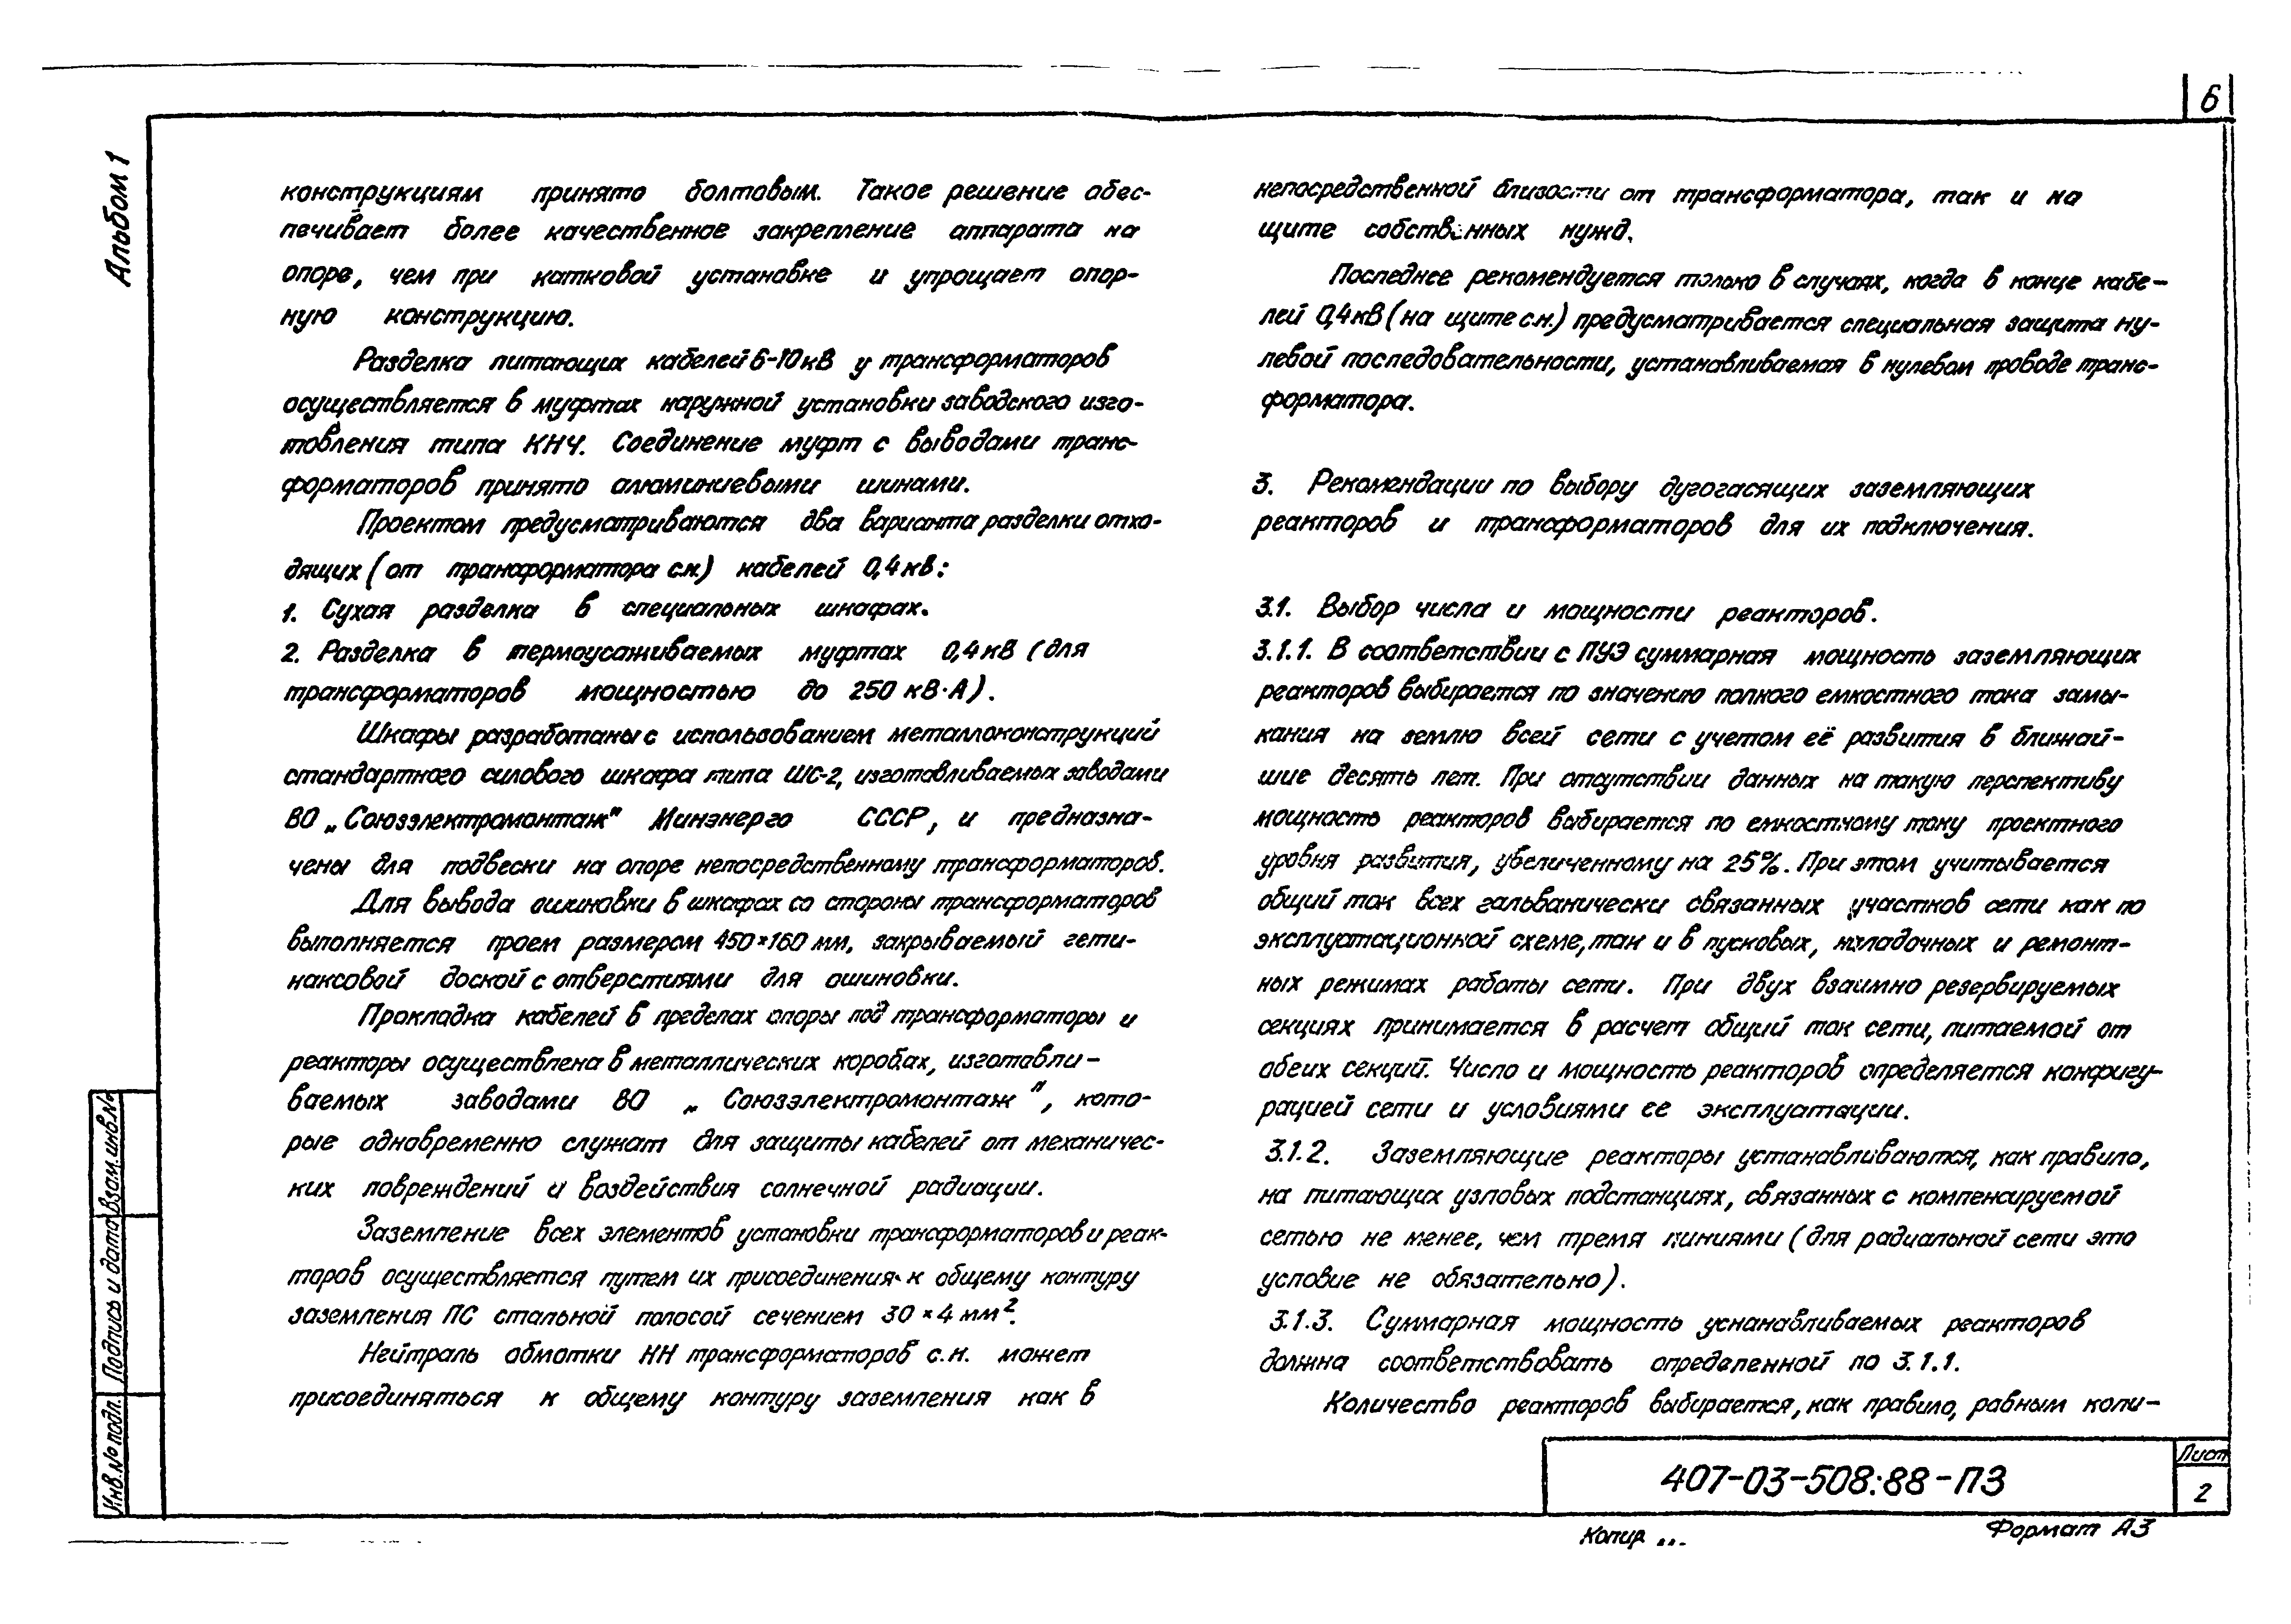 6
Альбом 1
конструкциям принято болтовым. Такое решение обес-
печивает более качественное закрепление аппарата на
опоре, чем при катковой установке и упрощает опор-
ную конструкцию.
Разделка питающих кабелей 6-10кВ у трансформаторов
осуществляется в муфтах наружной установки заводского изго-
товления типа КНЧ. Соединение муфт с выводами транс-
форматоров принято алюминиевыми шинами.
Проектом предусматриваются два варианта разделки отхо-
дящих (от трансформатора с.н.) кабелей 0,4кВ:
1. Сухая разделка в специальных шкафах.
2. Разделка в термоусаживаемых муфтах 0,4кВ (для
трансформаторов мощностью до 250 кВ·А).
Шкафы разработаны с использованием металлоконструкций
стандартного силового шкафа типа ШС-2, изготавливаемых заводами
ВО „Союзэлектромонтаж" Минэнерго СССР, и предназна-
чены для подвески на опоре непосредственному трансформаторов.
Для вывода ошиновки в шкафах со стороны трансформаторов
выполняется проем размером 450×160 мм, закрываемый гети-
наксовой доской с отверстиями для ошиновки.
Прокладка кабелей в пределах опоры под трансформаторы и
реакторы осуществлена в металлических коробах, изготавли-
ваемых заводами ВО „ Союзэлектромонтаж ", кото-
рые одновременно служат для защиты кабелей от механичес-
ких повреждений и воздействия солнечной радиации.
Заземление всех элементов установки трансформаторов и реак-
торов осуществляется путем их присоединения к общему контуру
заземления ПС стальной полосой сечением 30×4 мм².
Нейтраль обмотки НН трансформаторов с.н. может
присоединяться к общему контуру заземления как в
непосредственной близости от трансформатора, так и на
щите собственных нужд.
Последнее рекомендуется только в случаях, когда в конце кабе-
лей 0,4кВ (на щите с.н.) предусматривается специальная защита ну-
левой последовательности, устанавливаемая в нулевом проводе транс-
форматора.
3. Рекомендации по выбору дугогасящих заземляющих
реакторов и трансформаторов для их подключения.
3.1. Выбор числа и мощности реакторов.
3.1.1. В соответствии с ПУЭ суммарная мощность заземляющих
реакторов выбирается по значению полного емкостного тока замы-
кания на землю всей сети с учетом её развития в ближай-
шие десять лет. При отсутствии данных на такую перспективу
мощность реакторов выбирается по емкостному току проектного
уровня развития, увеличенному на 25%. При этом учитывается
общий ток всех гальванически связанных участков сети как по
эксплуатационной схеме, так и в пусковых, наладочных и ремонт-
ных режимах работы сети. При двух взаимно резервируемых
секциях принимается в расчет общий ток сети, питаемой от
обеих секций. Число и мощность реакторов определяется конфигу-
рацией сети и условиями ее эксплуатации.
3.1.2. Заземляющие реакторы устанавливаются, как правило,
на питающих узловых подстанциях, связанных с компенсируемой
сетью не менее, чем тремя линиями (для радиальной сети это
условие не обязательно).
3.1.3. Суммарная мощность уснанавливаемых реакторов
должна соответствовать определенной по 3.1.1.
Количество реакторов выбирается, как правило, равным коли-
Инв.№ подл. Подпись и дата Взам.инв.№
407-03-508.88-ПЗ
Лист
2
Копир
Формат А3